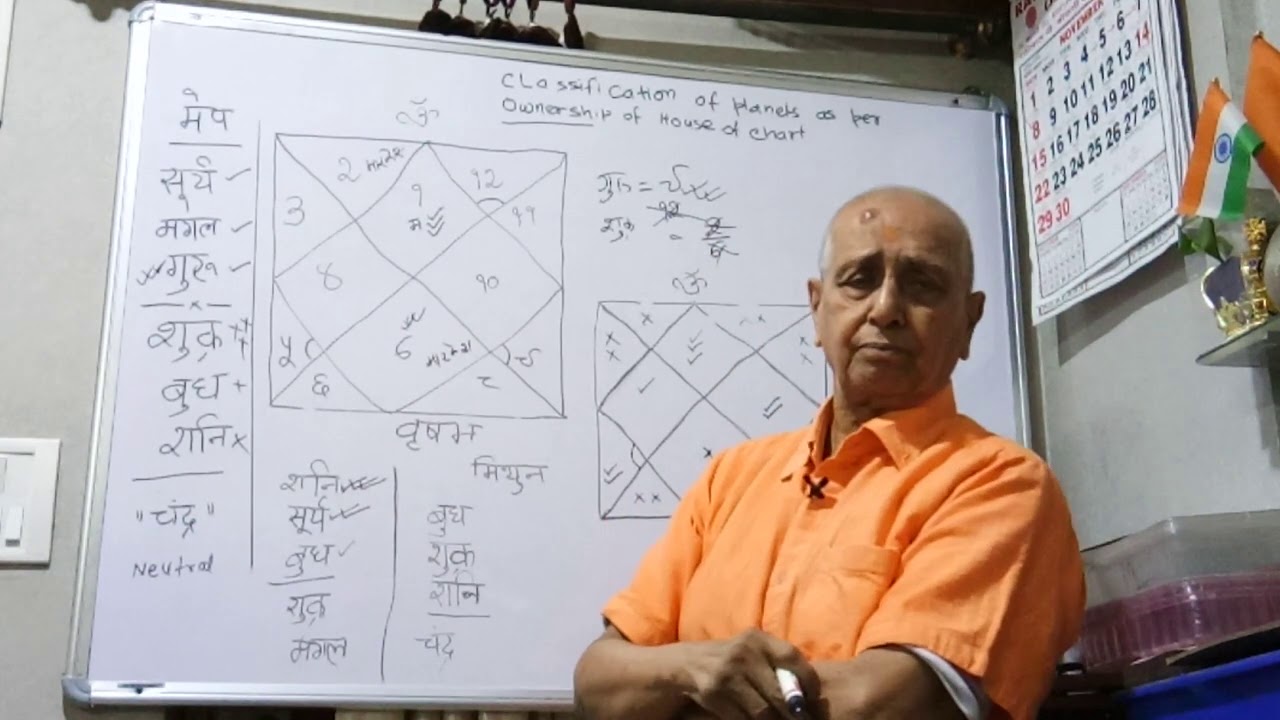 Classification of planets as per
Ownership of House of chart
मेष
सूर्य
मंगल
गुरू
शुक्र
बुध
शनि
"चंद्र"
Neutral
ॐ
२ मारकेश
१
म
१२
११
३
४
१०
५
६
७ मारकेश
८
९
गुरू = ९
१२
शुक्र =
ॐ
वृषभ
शनि
सूर्य
बुध
शुक्र
मंगल
मिथुन
बुध
शुक्र
शनि
चंद्र
NOVEMBER
1 2 3 4 5 6 7
8 9 10 11 12 13 14
15 16 17 18 19 20 21
22 23 24 25 26 27 28
29 30